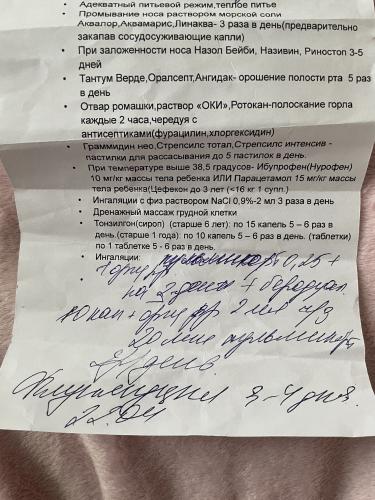 Адекватный питьевой режим,теплое питье
Промывание носа раствором морской соли
Аквалор,Аквамарис,Линаква- 3 раза в день(предварительно
закапав сосудосуживающие капли)
При заложенности носа Назол Бейби, Називин, Риностоп 3-5
дней
Тантум Верде,Оралсепт,Ангидак- орошение полости рта 5 раз
в день
Отвар ромашки,раствор «ОКИ»,Ротокан-полоскание горла
каждые 2 часа,чередуя с
антисептиками(фурацилин,хлоргексидин)
Граммидин нео,Стрепсилс тотал,Стрепсилс интенсив -
пастилки для рассасывания до 5 пастилок в день.
При температуре выше 38,5 градусов- Ибупрофен(Нурофен)
10 мг/кг массы тела ребенка ИЛИ Парацетамол 15 мг/кг массы
тела ребенка(Цефекон до 3 лет (<16 кг 1 супп.)
Ингаляции с физ.раствором NaCl 0,9%-2 мл 3 раза в день
Дренажный массаж грудной клетки
Тонзилгон(сироп) (старше 6 лет): по 15 капель 5 – 6 раз в
день.(старше 1 года): по 10 капель 5 – 6 раз в день. (таблетки)
по 1 таблетке 5 - 6 раз в день.
Ингаляции: пульмикорт 0,25 +
на 2
10 кап + физ 2 мл
20 мин пульмикорт
день.
3-4 дня.
22.04